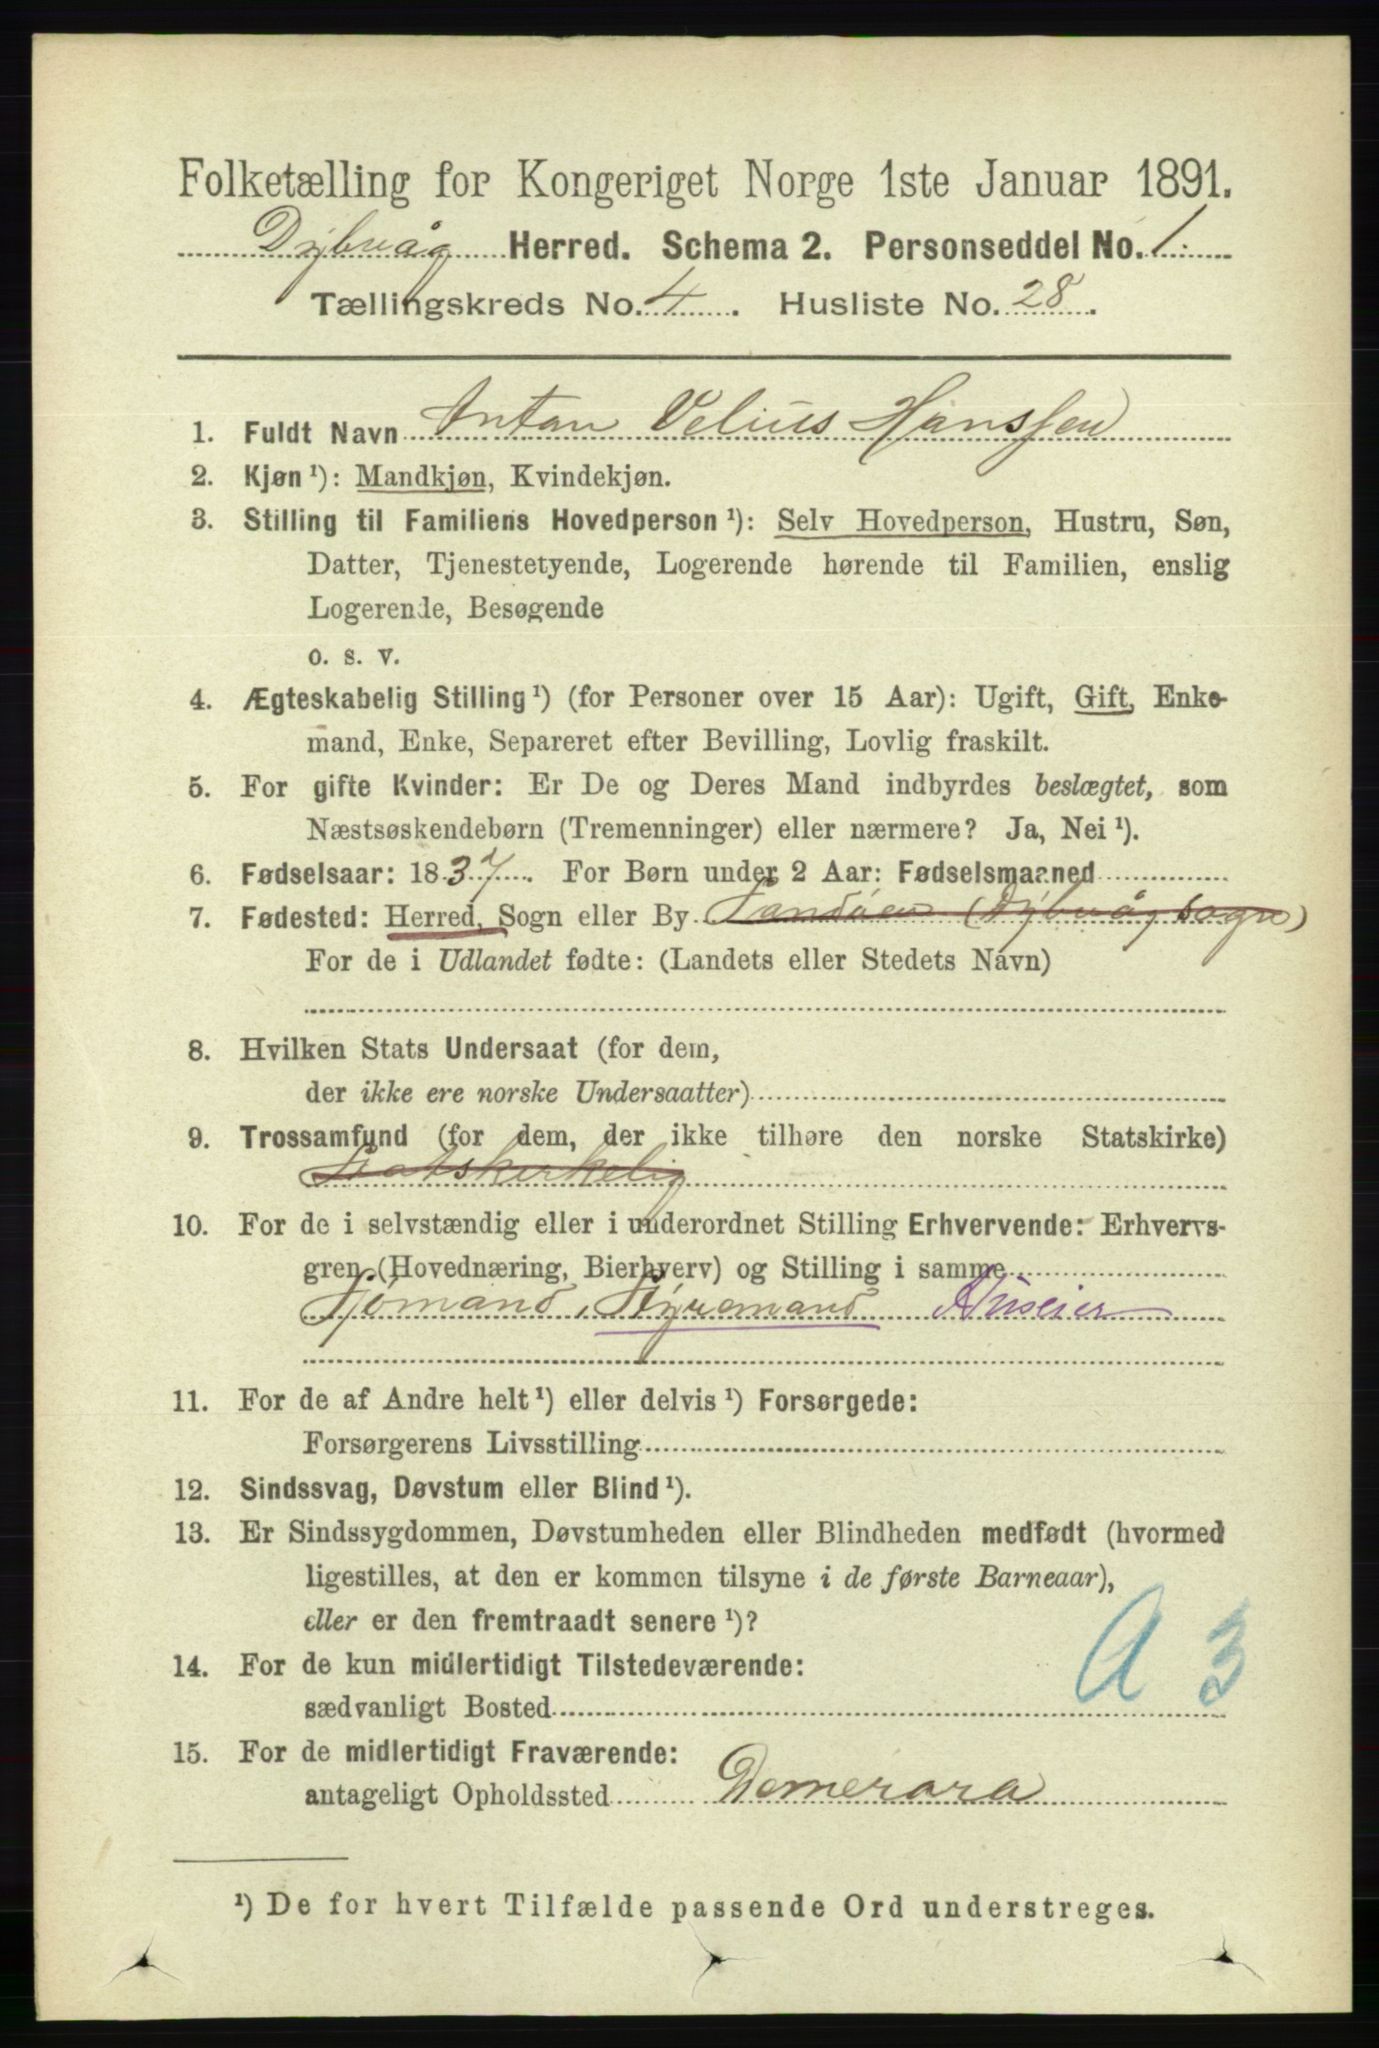 Folketælling for Kongeriget Norge 1ste Januar 1891.
Dybvåg Herred. Schema 2. Personseddel No. 1.
Tællingskreds No. 4. Husliste No. 28.
1. Fuldt Navn Anton Velius Hanssen
2. Kjøn ¹): Mandkjøn, Kvindekjøn.
3. Stilling til Familiens Hovedperson ¹): Selv Hovedperson, Hustru, Søn,
Datter, Tjenestetyende, Logerende hørende til Familien, enslig
Logerende, Besøgende
o. s. v.
4. Ægteskabelig Stilling ¹) (for Personer over 15 Aar): Ugift, Gift, Enke-
mand, Enke, Separeret efter Bevilling, Lovlig fraskilt.
5. For gifte Kvinder: Er De og Deres Mand indbyrdes beslægtet, som
Næstsøskendebørn (Tremenninger) eller nærmere? Ja, Nei ¹).
6. Fødselsaar: 1837. For Børn under 2 Aar: Fødselsmaaned
7. Fødested: Herred, Sogn eller By Sandøen (Dybvåg sogn)
For de i Udlandet fødte: (Landets eller Stedets Navn)
8. Hvilken Stats Undersaat (for dem,
der ikke ere norske Undersaatter)
9. Trossamfund (for dem, der ikke tilhøre den norske Statskirke)
Statskirkelig
10. For de i selvstændig eller i underordnet Stilling Erhvervende: Erhvervs-
gren (Hovednæring, Bierhverv) og Stilling i samme
Sjømand, Styremand Huseier
11. For de af Andre helt ¹) eller delvis ¹) Forsørgede:
Forsørgerens Livsstilling
12. Sindssvag, Døvstum eller Blind ¹).
13. Er Sindssygdommen, Døvstumheden eller Blindheden medfødt (hvormed
ligestilles, at den er kommen tilsyne i de første Barneaar),
eller er den fremtraadt senere ¹)?
A 3
14. For de kun midlertidigt Tilstedeværende:
sædvanligt Bosted
15. For de midlertidigt Fraværende:
antageligt Opholdssted Demerara
¹) De for hvert Tilfælde passende Ord understreges.